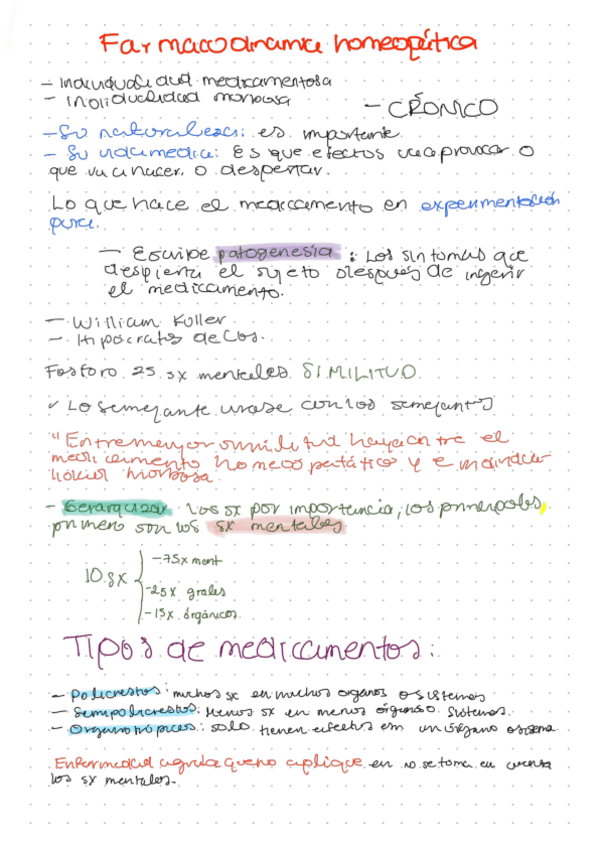 Farmacodinamia homeopática
- Individualidad medicamentosa
- Individualidad morbosa
- CRÓNICO
- Su naturaleza: es importante
- Su vida media: Es que efectos va a provocar o
que va a hacer, o despertar.
Lo que hace el medicamento en experimentación
pura.
- Esquipe patogenesia : Los sintomas que
despierta el sujeto despues de ingerir
el medicamento.
- William Kuller
- Hipócrates de Cos.
Fosforo 25 sx mentales SIMILITUD
✓ Lo semejante curase con los semejantes
"Entre mayor similitud haya entre el
medicamento homeopatático y e
morbosa.
- Gerarquizar los sx por importancia, los principales,
primero son los sx mentales
10 sx
- 7 sx ment
- 2 sx grales
- 1 sx órganicos.
Tipos de medicamentos:
- Policrestos: muchos sx en muchos organos o sistemas
- Semipolicrestos: Menos sx en menos órganos o sistemas.
- Organotrópicos: solo tienen efectos en un órgano o
Enfermedad aguda que no aplique en no se toma en cuenta
los sx mentales.